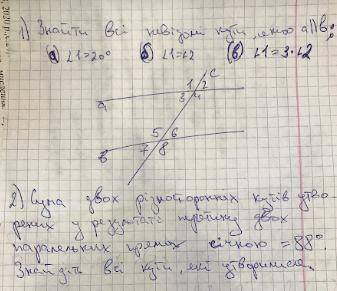 1) Знайти всі невідомі кути, якщо a||b:
а) ∠1=20° б) ∠1=∠2 в) ∠1=3·∠2
c
1 2
a 3 4
5 6
b 7 8
2) Сума двох різносторонніх кутів утво
рених у результаті перетину двох
паралельних прямих січною =88°.
Знайдіть всі кути, які утворилися.